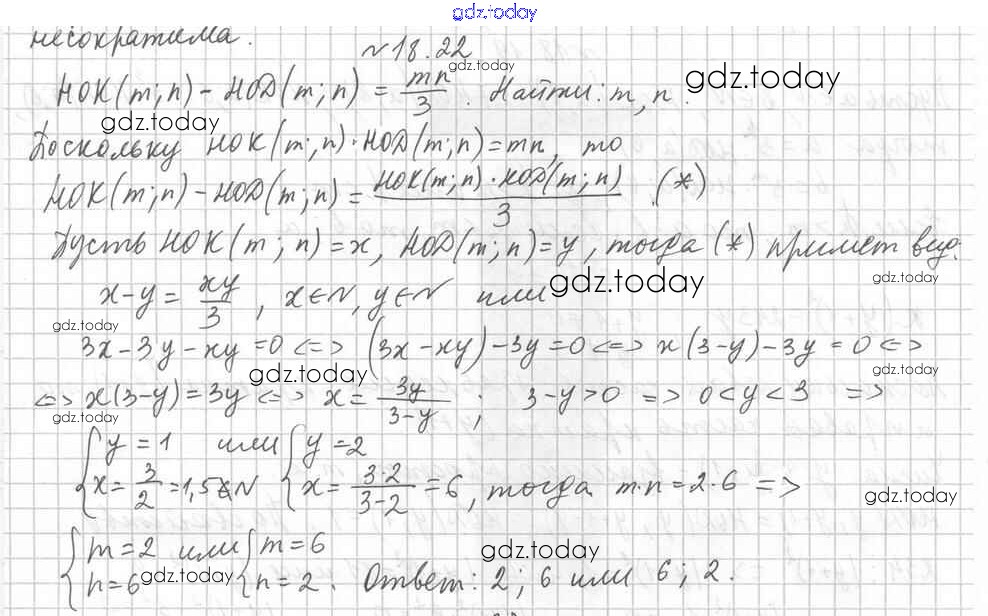 gdz.today
несократима.
№18.22
gdz.today
НОК(m;n) - НОД(m;n) = mn/3. Найти: m, n.
gdz.today
gdz.today
Поскольку НОК(m;n)·НОД(m;n)=mn, то
НОК(m;n) - НОД(m;n) = НОК(m;n)·НОД(m;n)/3 (*)
Пусть НОК(m;n)=x, НОД(m;n)=y, тогда (*) примет вид:
gdz.today
gdz.today
x-y = xy/3, x∈N, y∈N или
gdz.today
3x-3y-xy=0 <=> (3x-xy)-3y=0 <=> x(3-y)-3y=0 <=>
gdz.today
gdz.today
<=> x(3-y)=3y <=> x = 3y/(3-y); 3-y>0 => 0<y<3 =>
gdz.today
{y=1 или {y=2
{x=3/2=1,5∉N {x=3·2/(3-2)=6, тогда m·n=2·6 =>
gdz.today
{m=2 или {m=6
gdz.today
{n=6 {n=2. Ответ: 2; 6 или 6; 2.
gdz.today